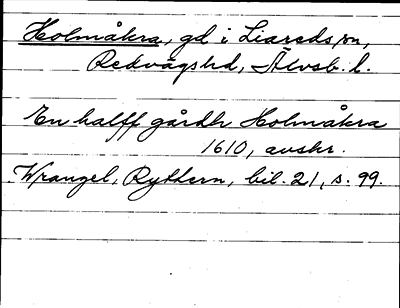 Holmåkra, gd i Liareds sn,
Redvägshd, Älvsb. l.
En halff gårdh Holmåkra
1610, avskr.
Wrangel, Rythern, bil. 21, s. 99.